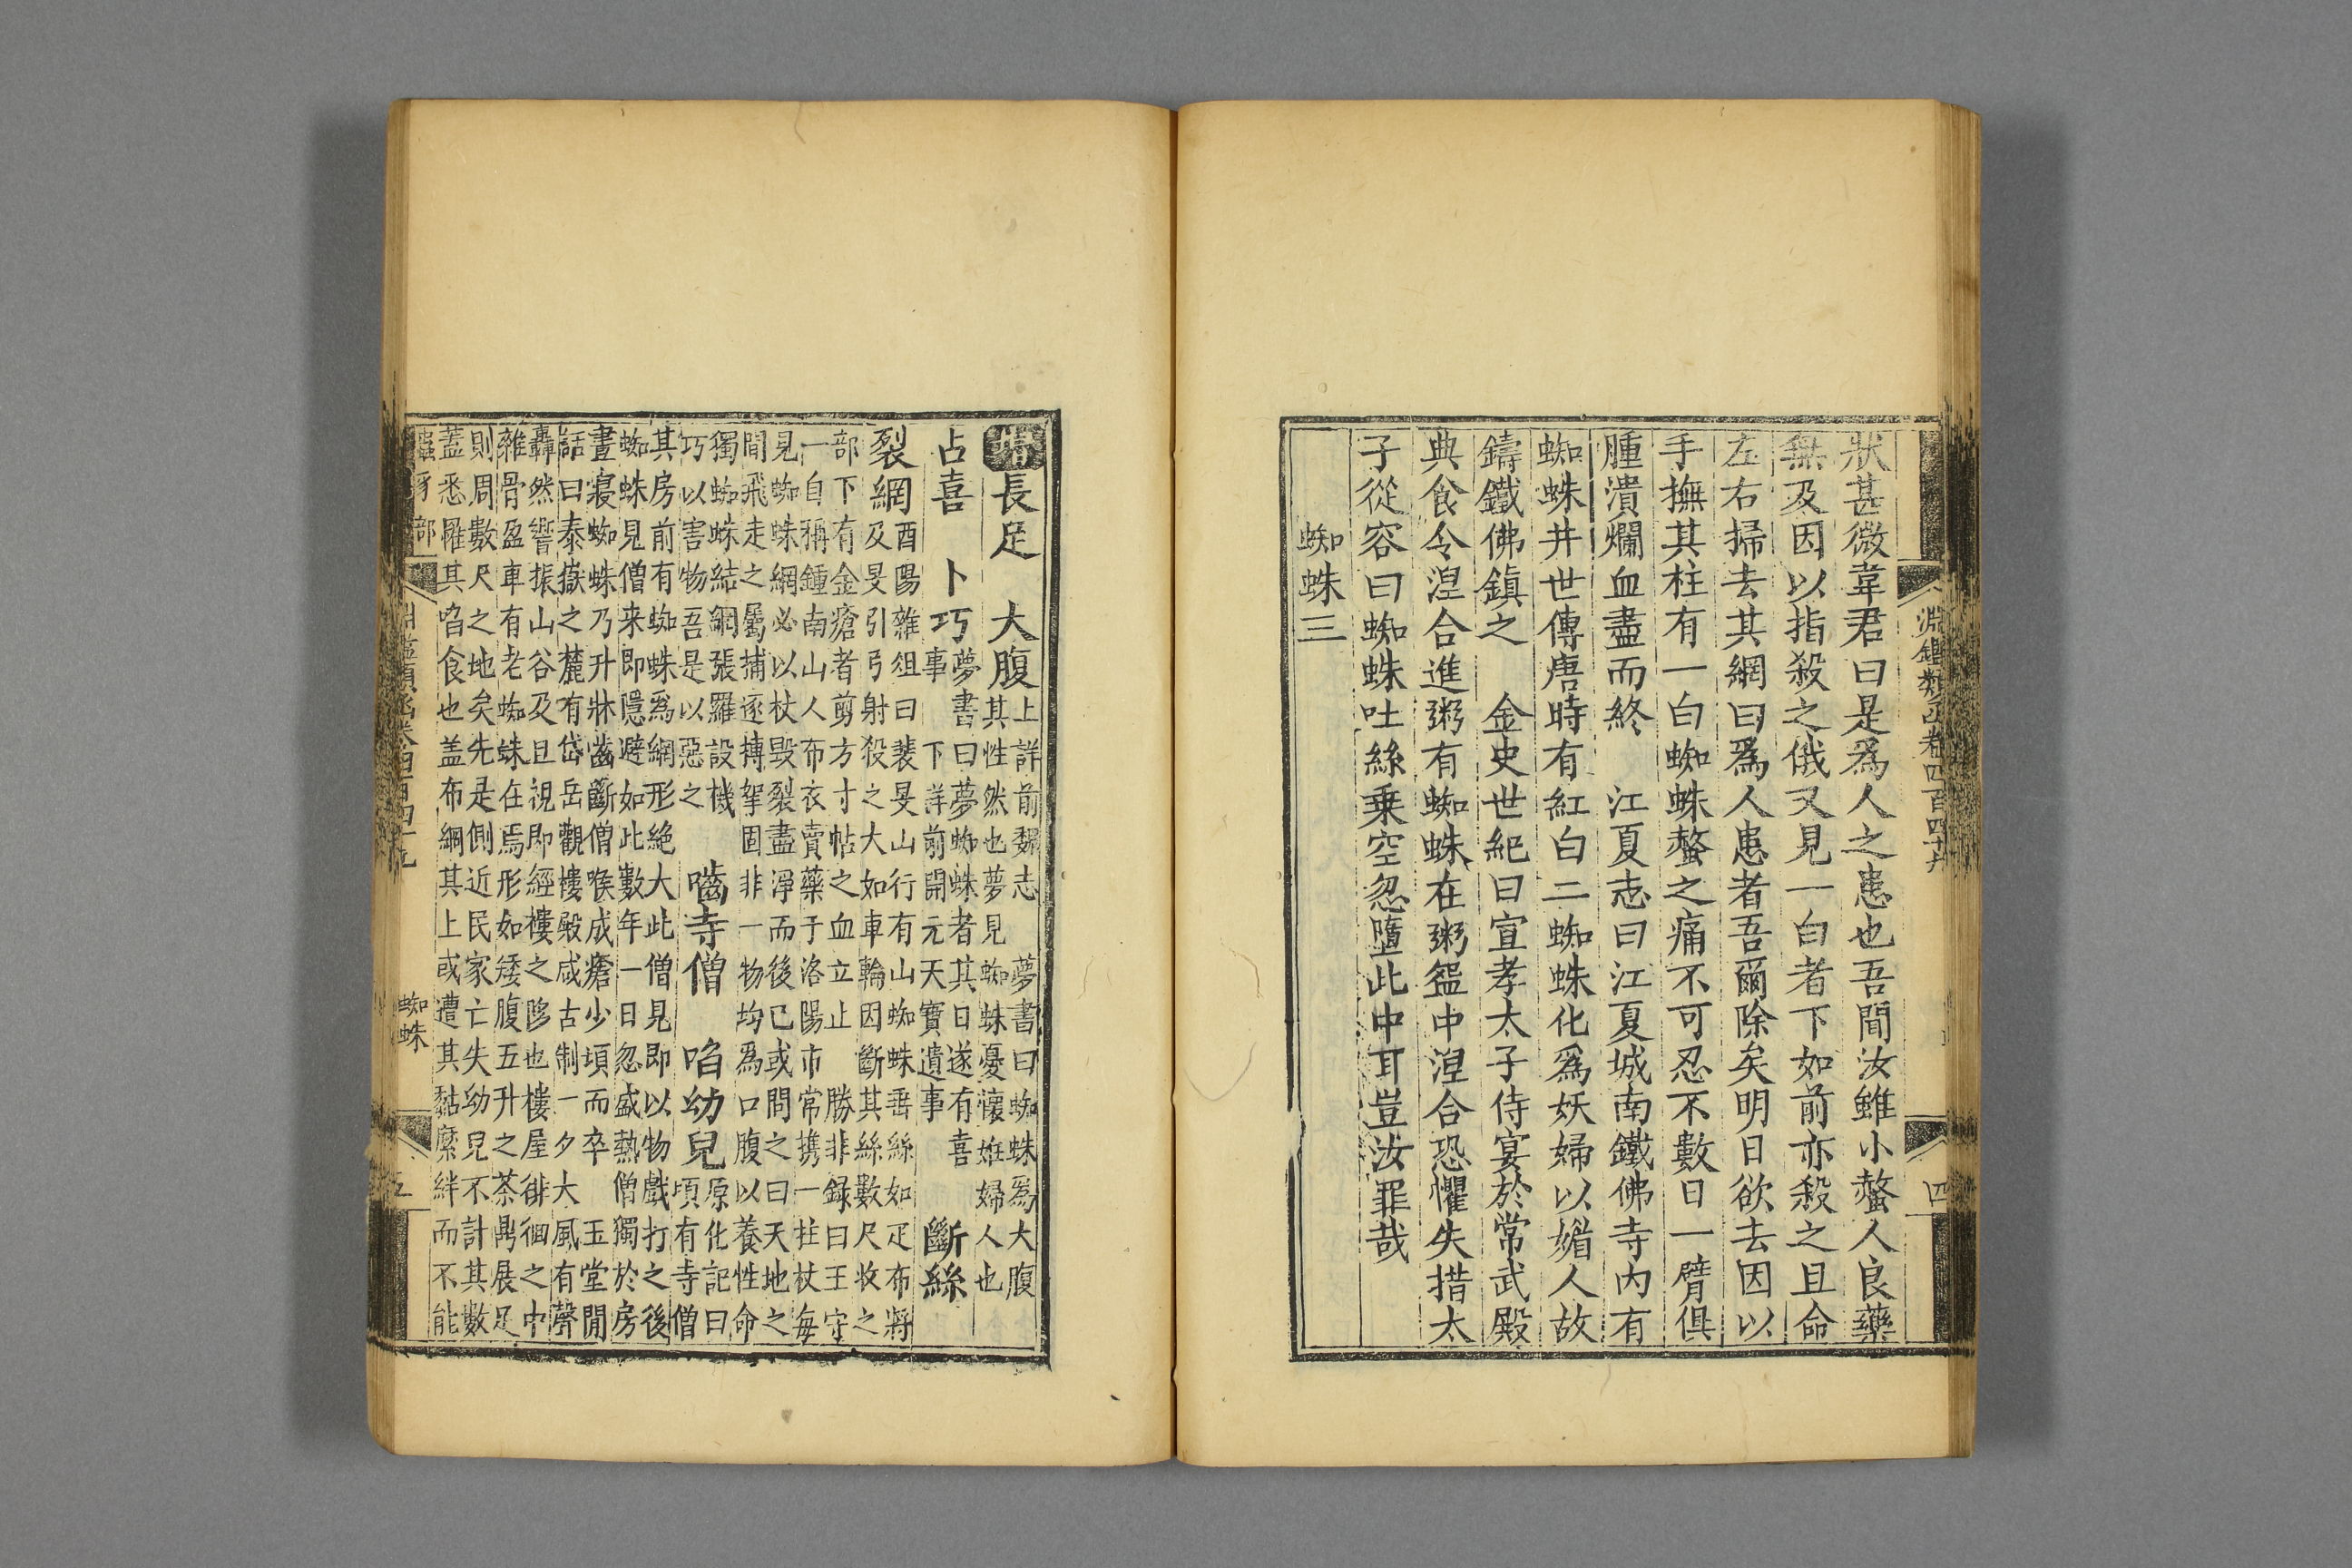 淵鑑類函卷四百四十九
四
狀甚微韋君曰是爲人之患也吾聞汝雖小螫人良藥
無及因以指殺之俄又見一白者下如前亦殺之且命
左右掃去其網曰爲人患者吾爾除矣明日欲去因以
手撫其柱有一白蜘蛛螫之痛不可忍不數日一臂俱
腫潰爛血盡而終 江夏志曰江夏城南鐵佛寺內有
蜘蛛井世傳唐時有紅白二蜘蛛化爲妖婦以媚人故
鑄鐵佛鎭之 金史世紀曰宣孝太子侍宴於常武殿
典食令涅合進粥有蜘蛛在粥盌中涅合恐懼失措太
子從容曰蜘蛛吐絲乗空忽墮此中耳豈汝罪哉
蜘蛛三
長足 大腹 上詳前魏志 夢書曰蜘蛛爲大腹
其性然也夢見蜘蛛憂懷姙婦人也
占喜 卜巧 夢書曰夢蜘蛛者其日遂有喜
事 下詳前開元天寶遺事 斷絲
裂網 酉陽雜俎曰裴旻山行有山蜘蛛垂絲如疋布將
及旻引弓射殺之大如車輪因斷其絲數尺收之
部下有金瘡者剪方寸帖之血立止 勝非録曰王守
一自稱鍾南山人布衣賣藥于洛陽市常携一拄杖每
見蜘蛛網必以杖毁裂盡淨而後已或問之曰天地之
間飛走之屬捕逐搏挐固非一物均爲口腹以養性命
獨蜘蛛結網張羅設機
巧以害物吾是以惡之 嚙寺僧 㗖幼兒 原化記曰
頃有寺僧
其房前有蜘蛛爲網形絶大此僧見即以物戲打之後
蜘蛛見僧来即隱避如此數年一日忽盛熱僧獨於房
晝寢蜘蛛乃升牀齒斷僧喉成瘡少頃而卒 玉堂閒
話曰泰嶽之麓有岱岳觀樓殿咸古制一夕大風有聲
轟然響振山谷及旦視即經樓之陊也樓屋徘徊之中
雜骨盈車有老蜘蛛在焉形如矮腹五升之茶鼎展足
則周數尺之地矣先是側近民家亡失幼兒不計其數
蓋悉罹其㗖食也盖布網其上或遭其黏縻絆而不能
蟲豸部
淵鑑類函卷四百四十九
蜘蛛
五